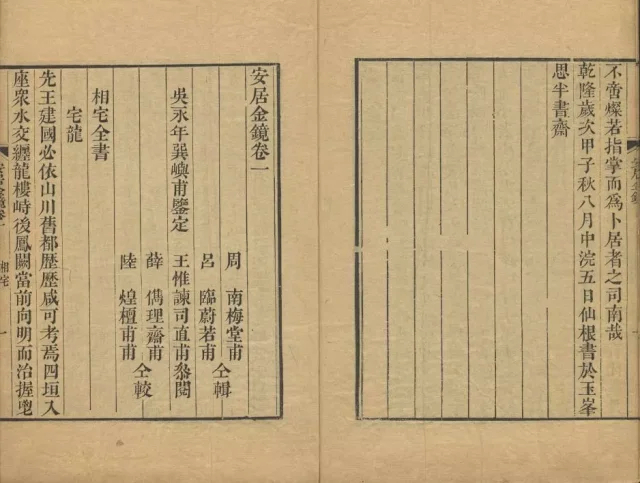 不啻燦若指掌而爲卜居者之司南哉
乾隆歲次甲子秋八月中浣五日仙根書於玉峯
思半書齋
安居金鏡卷一
周 南梅堂甫
呂 臨蔚若甫 仝輯
吳永年巽嶼甫鑒定 王惟諫司直甫叅閱
薛 儁理齋甫
陸 煌 甫 仝較
相宅全書
宅龍
先王建國必依山川舊都歷歷咸可考焉四垣入
座衆水交纏龍樓峙後鳳闕當前向明而治握
安居金鏡卷一 相宅 一